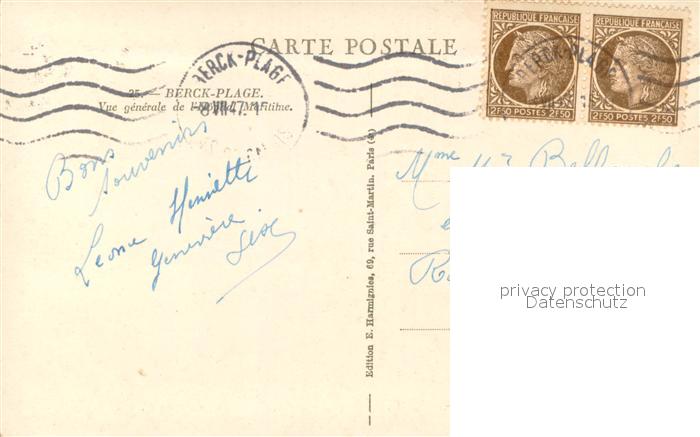 CARTE POSTALE
25. — BERCK-PLAGE.
Vue générale de l'Hôpital Maritime.
BERCK-PLAGE
REPUBLIQUE FRANÇAISE
2F50 POSTES 2F50
REPUBLIQUE FRANÇAISE
2F50 POSTES 2F50
BERCK-PLAGE
Bons
souvenirs
Léone Henriette
Geneviève
Edition E. Harmignies, 69, rue Saint-Martin, Paris (4e)
Mme
privacy protection
Datenschutz